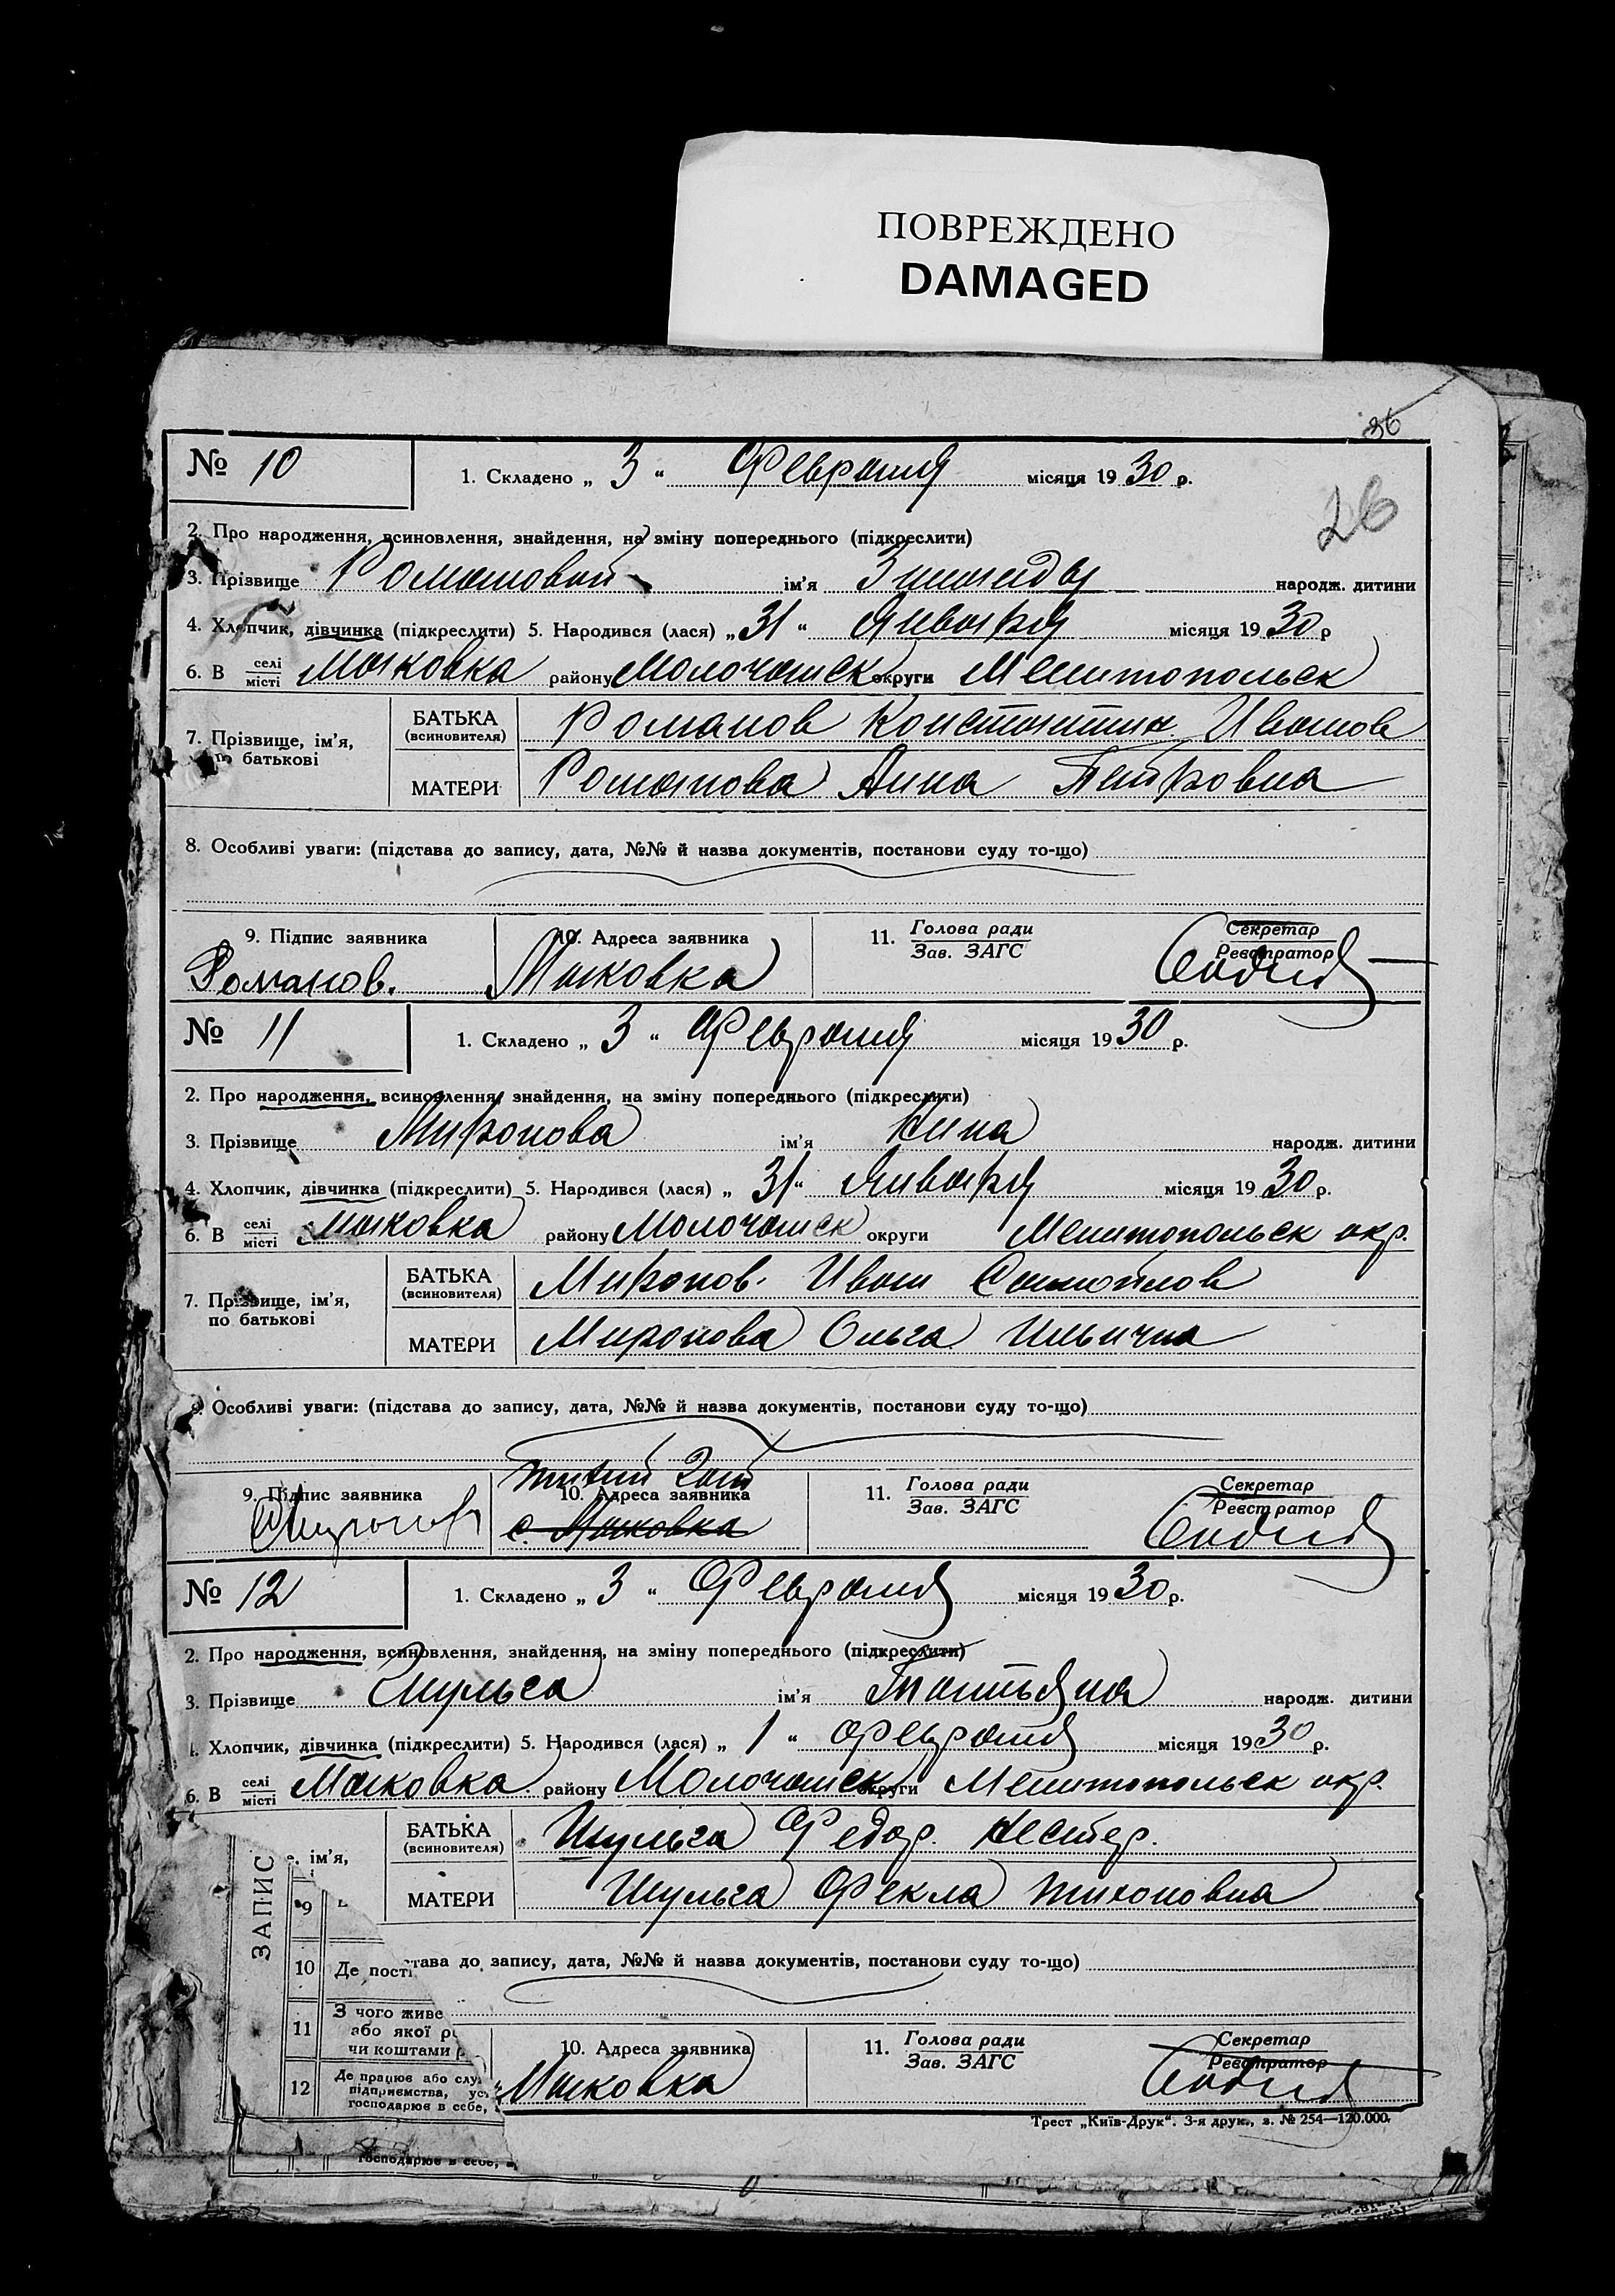 ПОВРЕЖДЕНО
DAMAGED
36
26
№ 10 1. Складено „ 3 “ Февраля місяця 1930 р.
2. Про народження, всиновлення, знайдення, на зміну попереднього (підкреслити)
3. Прізвище Романовой ім'я Зинаиды народж. дитини
4. Хлопчик, дівчинка (підкреслити) 5. Народився (лася) „ 31 “ Января місяця 1930 р
6. В селі місті Маковка району Молочанск округи Мелитопольск
7. Прізвище, ім'я, по батькові БАТЬКА (всиновителя) Романов Константин Иванов
МАТЕРИ Романова Анна Петровна
8. Особливі уваги: (підстава до запису, дата, №№ й назва документів, постанови суду то-що)
9. Підпис заявника 10. Адреса заявника 11. Голова ради Зав. ЗАГС Секретар Реєстратор
Романов. Маковка
№ 11 1. Складено „ 3 “ Февраля місяця 1930 р.
2. Про народження, всиновлення, знайдення, на зміну попереднього (підкреслити)
3. Прізвище Миронова ім'я Нина народж. дитини
4. Хлопчик, дівчинка (підкреслити) 5. Народився (лася) „ 31 “ Января місяця 1930 р.
6. В селі місті Маковка району Молочанск округи Мелитопольск окр.
7. Прізвище, ім'я, по батькові БАТЬКА (всиновителя) Миронов Иван Самойлов
МАТЕРИ Миронова Ольга Ильична
8. Особливі уваги: (підстава до запису, дата, №№ й назва документів, постанови суду то-що)
9. Підпис заявника 10. Адреса заявника 11. Голова ради Зав. ЗАГС Секретар Реєстратор
с. Маковка
№ 12 1. Складено „ 3 “ Февраля місяця 1930 р.
2. Про народження, всиновлення, знайдення, на зміну попереднього (підкреслити)
3. Прізвище Шульга ім'я Татьяна народж. дитини
4. Хлопчик, дівчинка (підкреслити) 5. Народився (лася) „ 1 “ февраля місяця 1930 р.
6. В селі місті Маковка району Молочанск округи Мелитопольск окр.
е, ім'я, БАТЬКА (всиновителя) Шульга Федор. Нестер.
МАТЕРИ Шульга Фекла Тихоновна
тава до запису, дата, №№ й назва документів, постанови суду то-що)
10. Адреса заявника 11. Голова ради Зав. ЗАГС Секретар Реєстратор
Маковка
ЗАПИС
9
10 Де пості
11 З чого живе
або якої р
чи коштами
12 Де працює або слу
підприємства, ус
господарює в себе,
Трест „Київ-Друк“. 3-я друк., з. № 254—120.000.
господарює в себе,